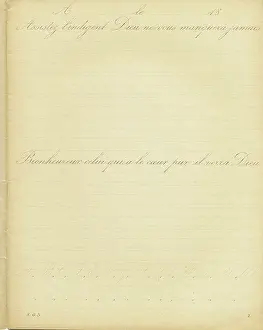 A le 18
Assistez l'indigent Dieu ne vous manquera jamais
Bienheureux celui qui a le cœur pur il verra Dieu